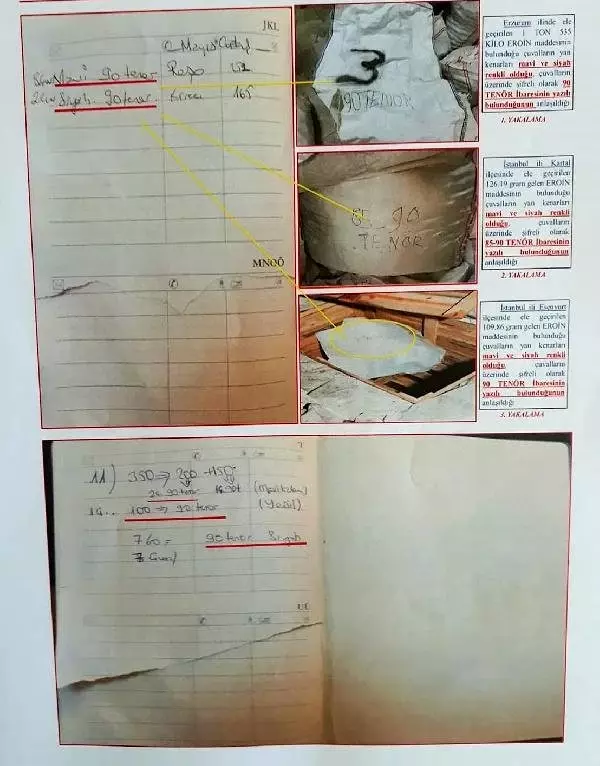 JKL
Mayıs
90 tenor
Siyah 90 tenor
165
MNOÖ
3
90 TENOR
85_90
TENOR
Erzurum ilinde ele
geçirilen 1 TON 535
KİLO EROİN maddesinin
bulunduğu çuvalların yan
kenarları mavi ve siyah
renkli olduğu, çuvalların
üzerinde şifreli olarak 90
TENÖR İbaresinin yazılı
bulunduğunun anlaşıldığı
1. YAKALAMA
İstanbul ili Kartal
ilçesinde ele geçirilen
126,19 gram gelen EROİN
maddesinin bulunduğu
çuvalların yan kenarları
mavi ve siyah renkli
olduğu, çuvalların
üzerinde şifreli olarak
85-90 TENÖR İbaresinin
yazılı bulunduğunun
anlaşıldığı
2. YAKALAMA
İstanbul ili Esenyurt
ilçesinde ele geçirilen
109,86 gram gelen EROİN
maddesinin bulunduğu
çuvalların yan kenarları
mavi ve siyah renkli
olduğu, çuvalların
üzerinde şifreli olarak
90 TENÖR İbaresinin
yazılı bulunduğunun
anlaşıldığı
3. YAKALAMA
11) 350 ⇒ 200 +150
100 ⇒ 90 tenor
760 = 90 tenor Siyah